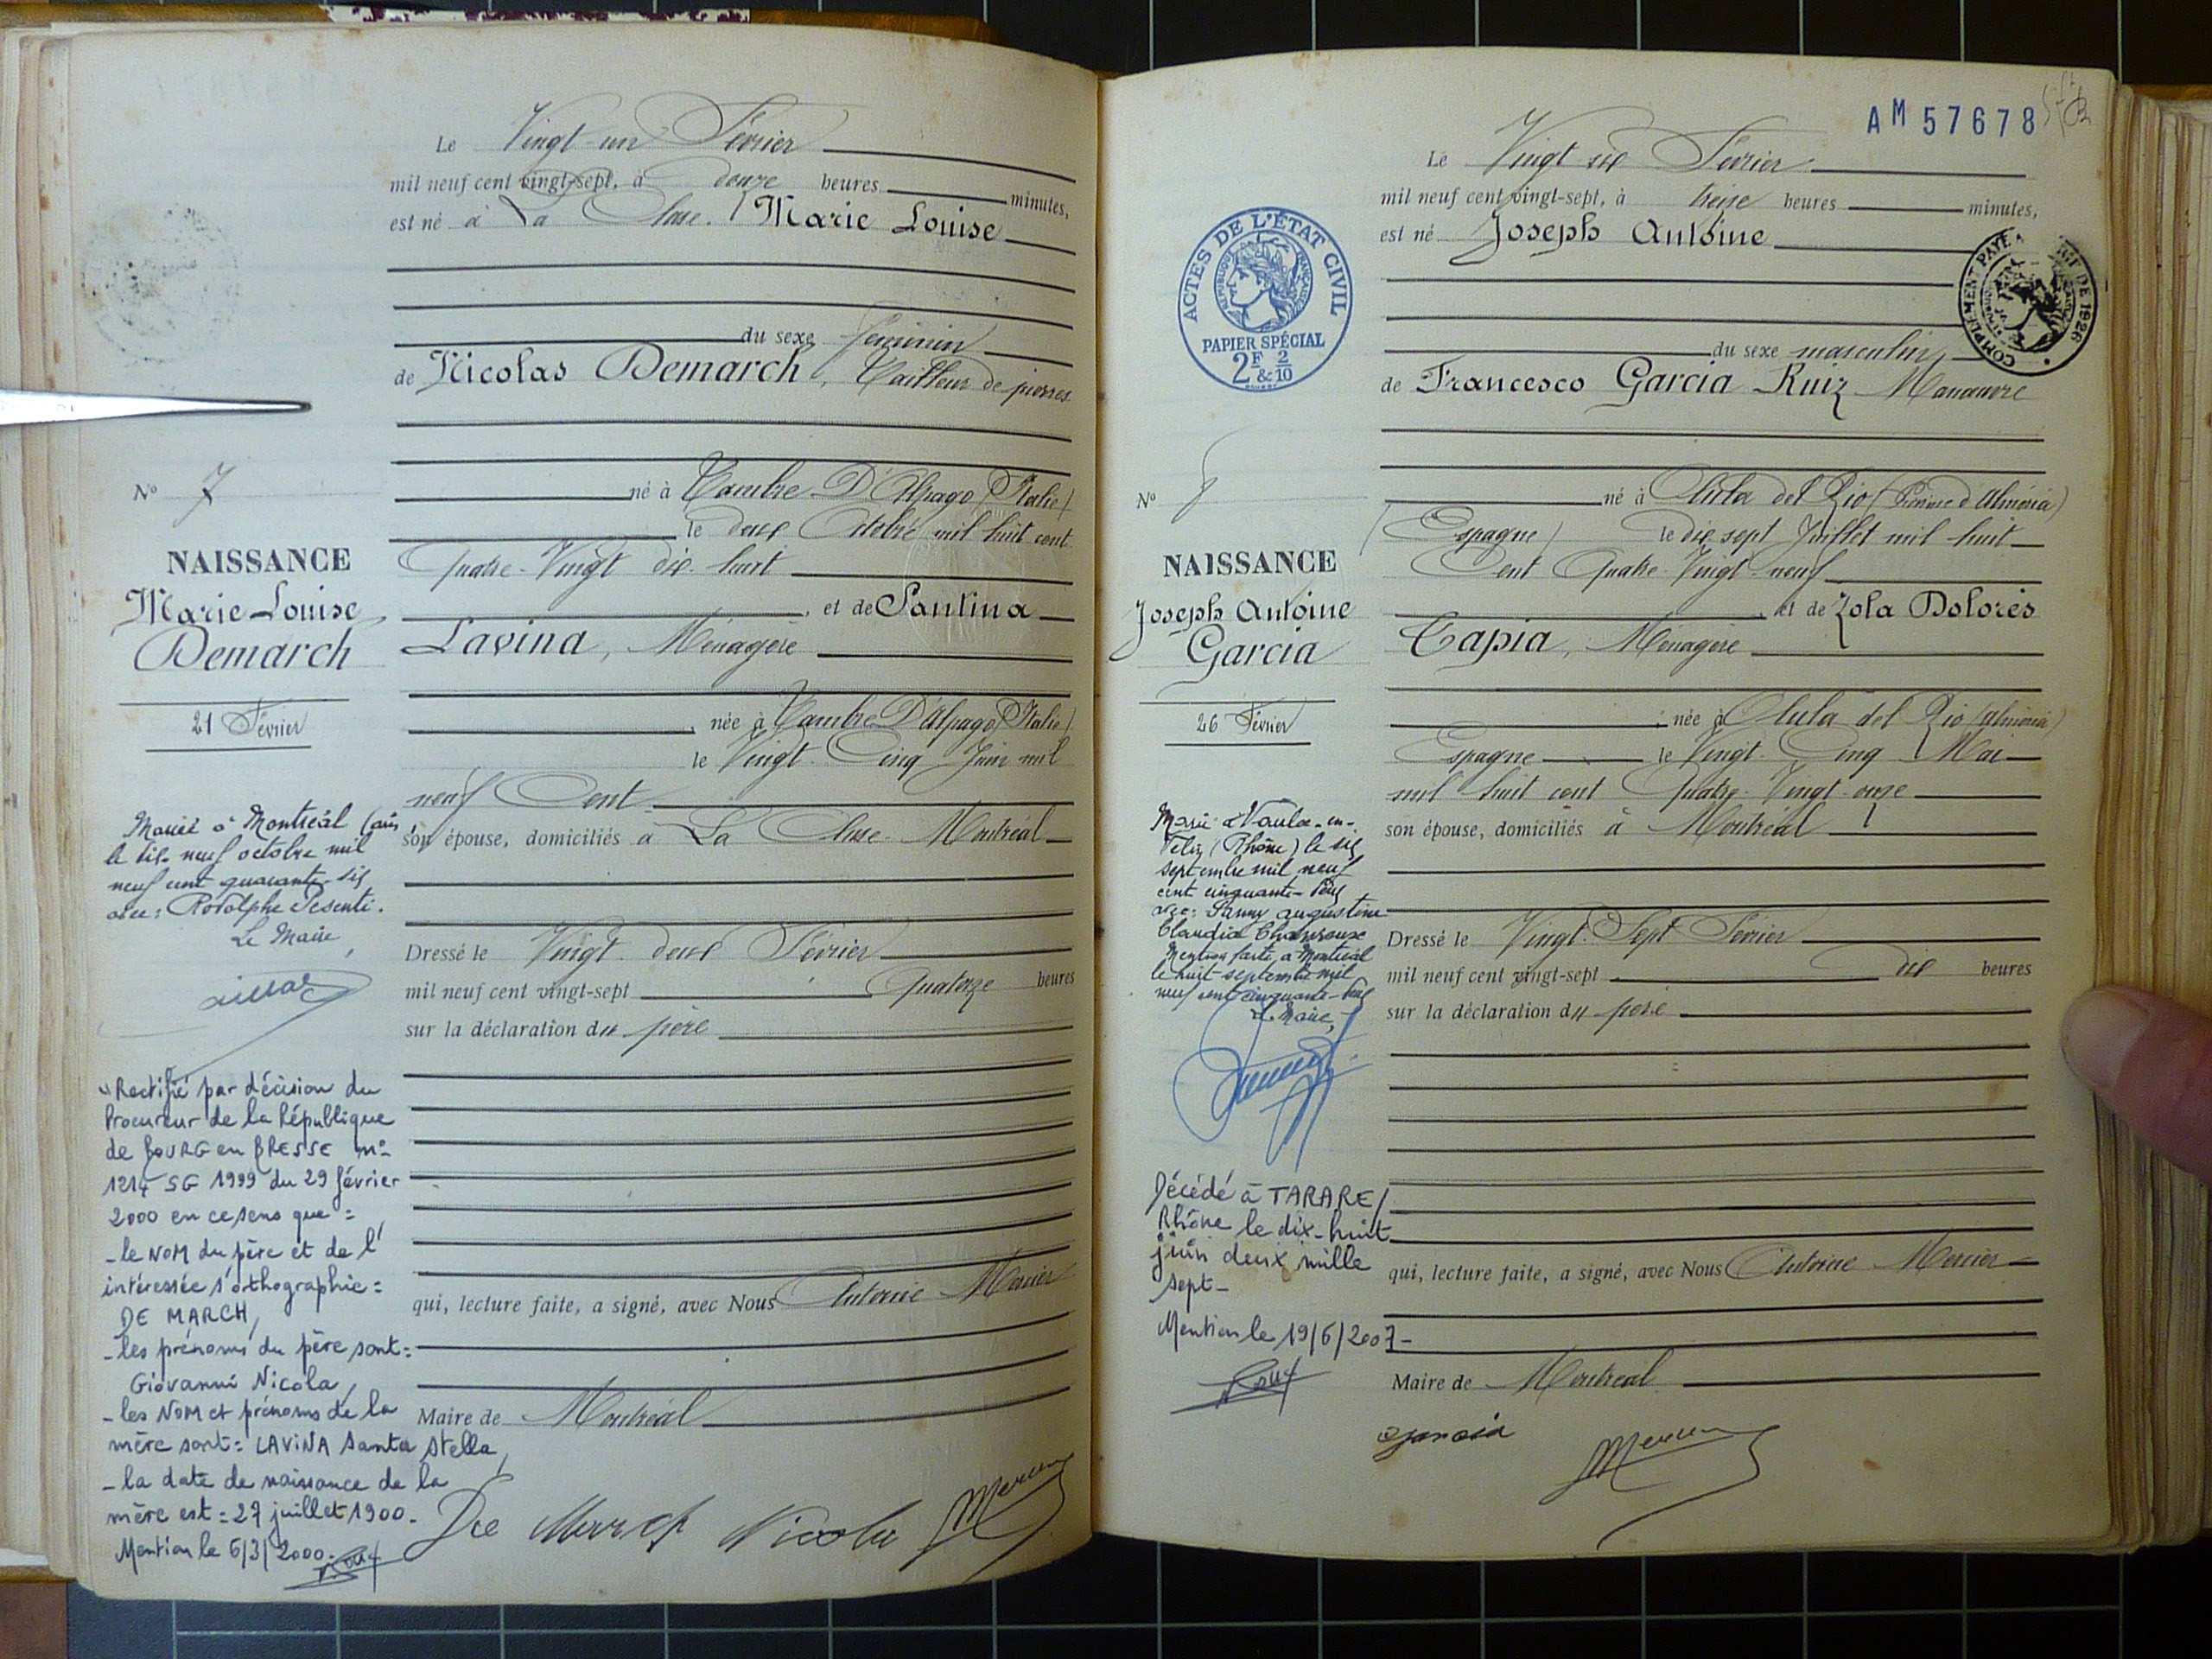 Le Vingt-un Février
mil neuf cent vingt-sept, à douze heures minutes,
est né à La Cluse. Marie Louise
du sexe féminin
de Nicolas Demarch, Tailleur de pierres
né à Tambre D'Alpago (Italie)
le deux Octobre mil huit cent
Quatre-Vingt dix-huit
, et de Santina
Lavina, Ménagère
, née à Tambre D'Alpago (Italie)
le Vingt-Cinq Juin mil
neuf Cent
son épouse, domiciliés à La Cluse-Montréal
Dressé le Vingt-deux Février
mil neuf cent vingt-sept Quatorze heures
sur la déclaration du père
qui, lecture faite, a signé, avec Nous Antoine Mercier
Maire de Montréal
De March Nicola Mercier
No 7
NAISSANCE
Marie-Louise
Demarch
21 Février
Mariée à Montréal (ain)
le dix-neuf octobre mil
neuf cent quarante-six
avec: Rodolphe Pesenti.
Le Maire
Rectifié par décision du
Procureur de la République
de BOURG en BRESSE n°
1214 SG 1999 du 29 février
2000 en ce sens que =
- le NOM du père et de l'
intéressée s'orthographie =
DE MARCH,
- les prénoms du père sont =
Giovanni Nicola,
- les NOM et prénoms de la
mère sont = LAVINA Santa Stella,
- la date de naissance de la
mère est = 27 juillet 1900.
Mention le 6/3/2000.
AM 57678
Le Vingt-six Février
mil neuf cent vingt-sept, à treize heures minutes,
est né Joseph Antoine
du sexe masculin
de Francesco Garcia Ruiz Manœuvre
né à Olula del Rio (Province d'Almeria)
(Espagne) le dix-sept Juillet mil huit
Cent Quatre-Vingt-neuf
, et de Lola Dolorès
Tapia, Ménagère
, née à Olula del Rio (Almeria)
Espagne le Vingt-Cinq Mai
mil huit cent Quatre-Vingt-onze
son épouse, domiciliés à Montréal
Dressé le Vingt-Sept Février
mil neuf cent vingt-sept dix heures
sur la déclaration du père
qui, lecture faite, a signé, avec Nous Antoine Mercier
Maire de Montréal
garcia Mercier
ACTES DE L'ÉTAT CIVIL
RÉPUBLIQUE FRANÇAISE
PAPIER SPÉCIAL
2F & 2/10
COMPLÉMENT PAYÉ DE 1926
No 8
NAISSANCE
Joseph Antoine
Garcia
26 Février
Marié à Vaulx-en-
Velin (Rhône) le six
septembre mil neuf
cent cinquante-deux
avec: Fanny Augustine
Claudia
Mention faite à Montréal
le huit septembre mil
neuf cent cinquante-deux
Le Maire,
Décédé à TARARE/
Rhône le dix-huit
juin deux mille
sept-
Mention le 19/6/2007-